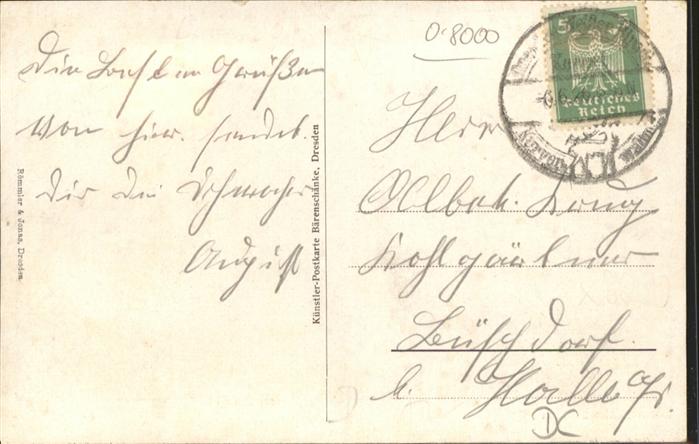 Die besten Grüße
von hier sendet
Dir Dein Schwager
August
Römmler & Jonas, Dresden
Künstler-Postkarte Bärenschänke, Dresden
0.8000
5
Deutsches
Reich
Herrn
Albert
Kohlgärtner
Büschdorf
b. Halle
DC